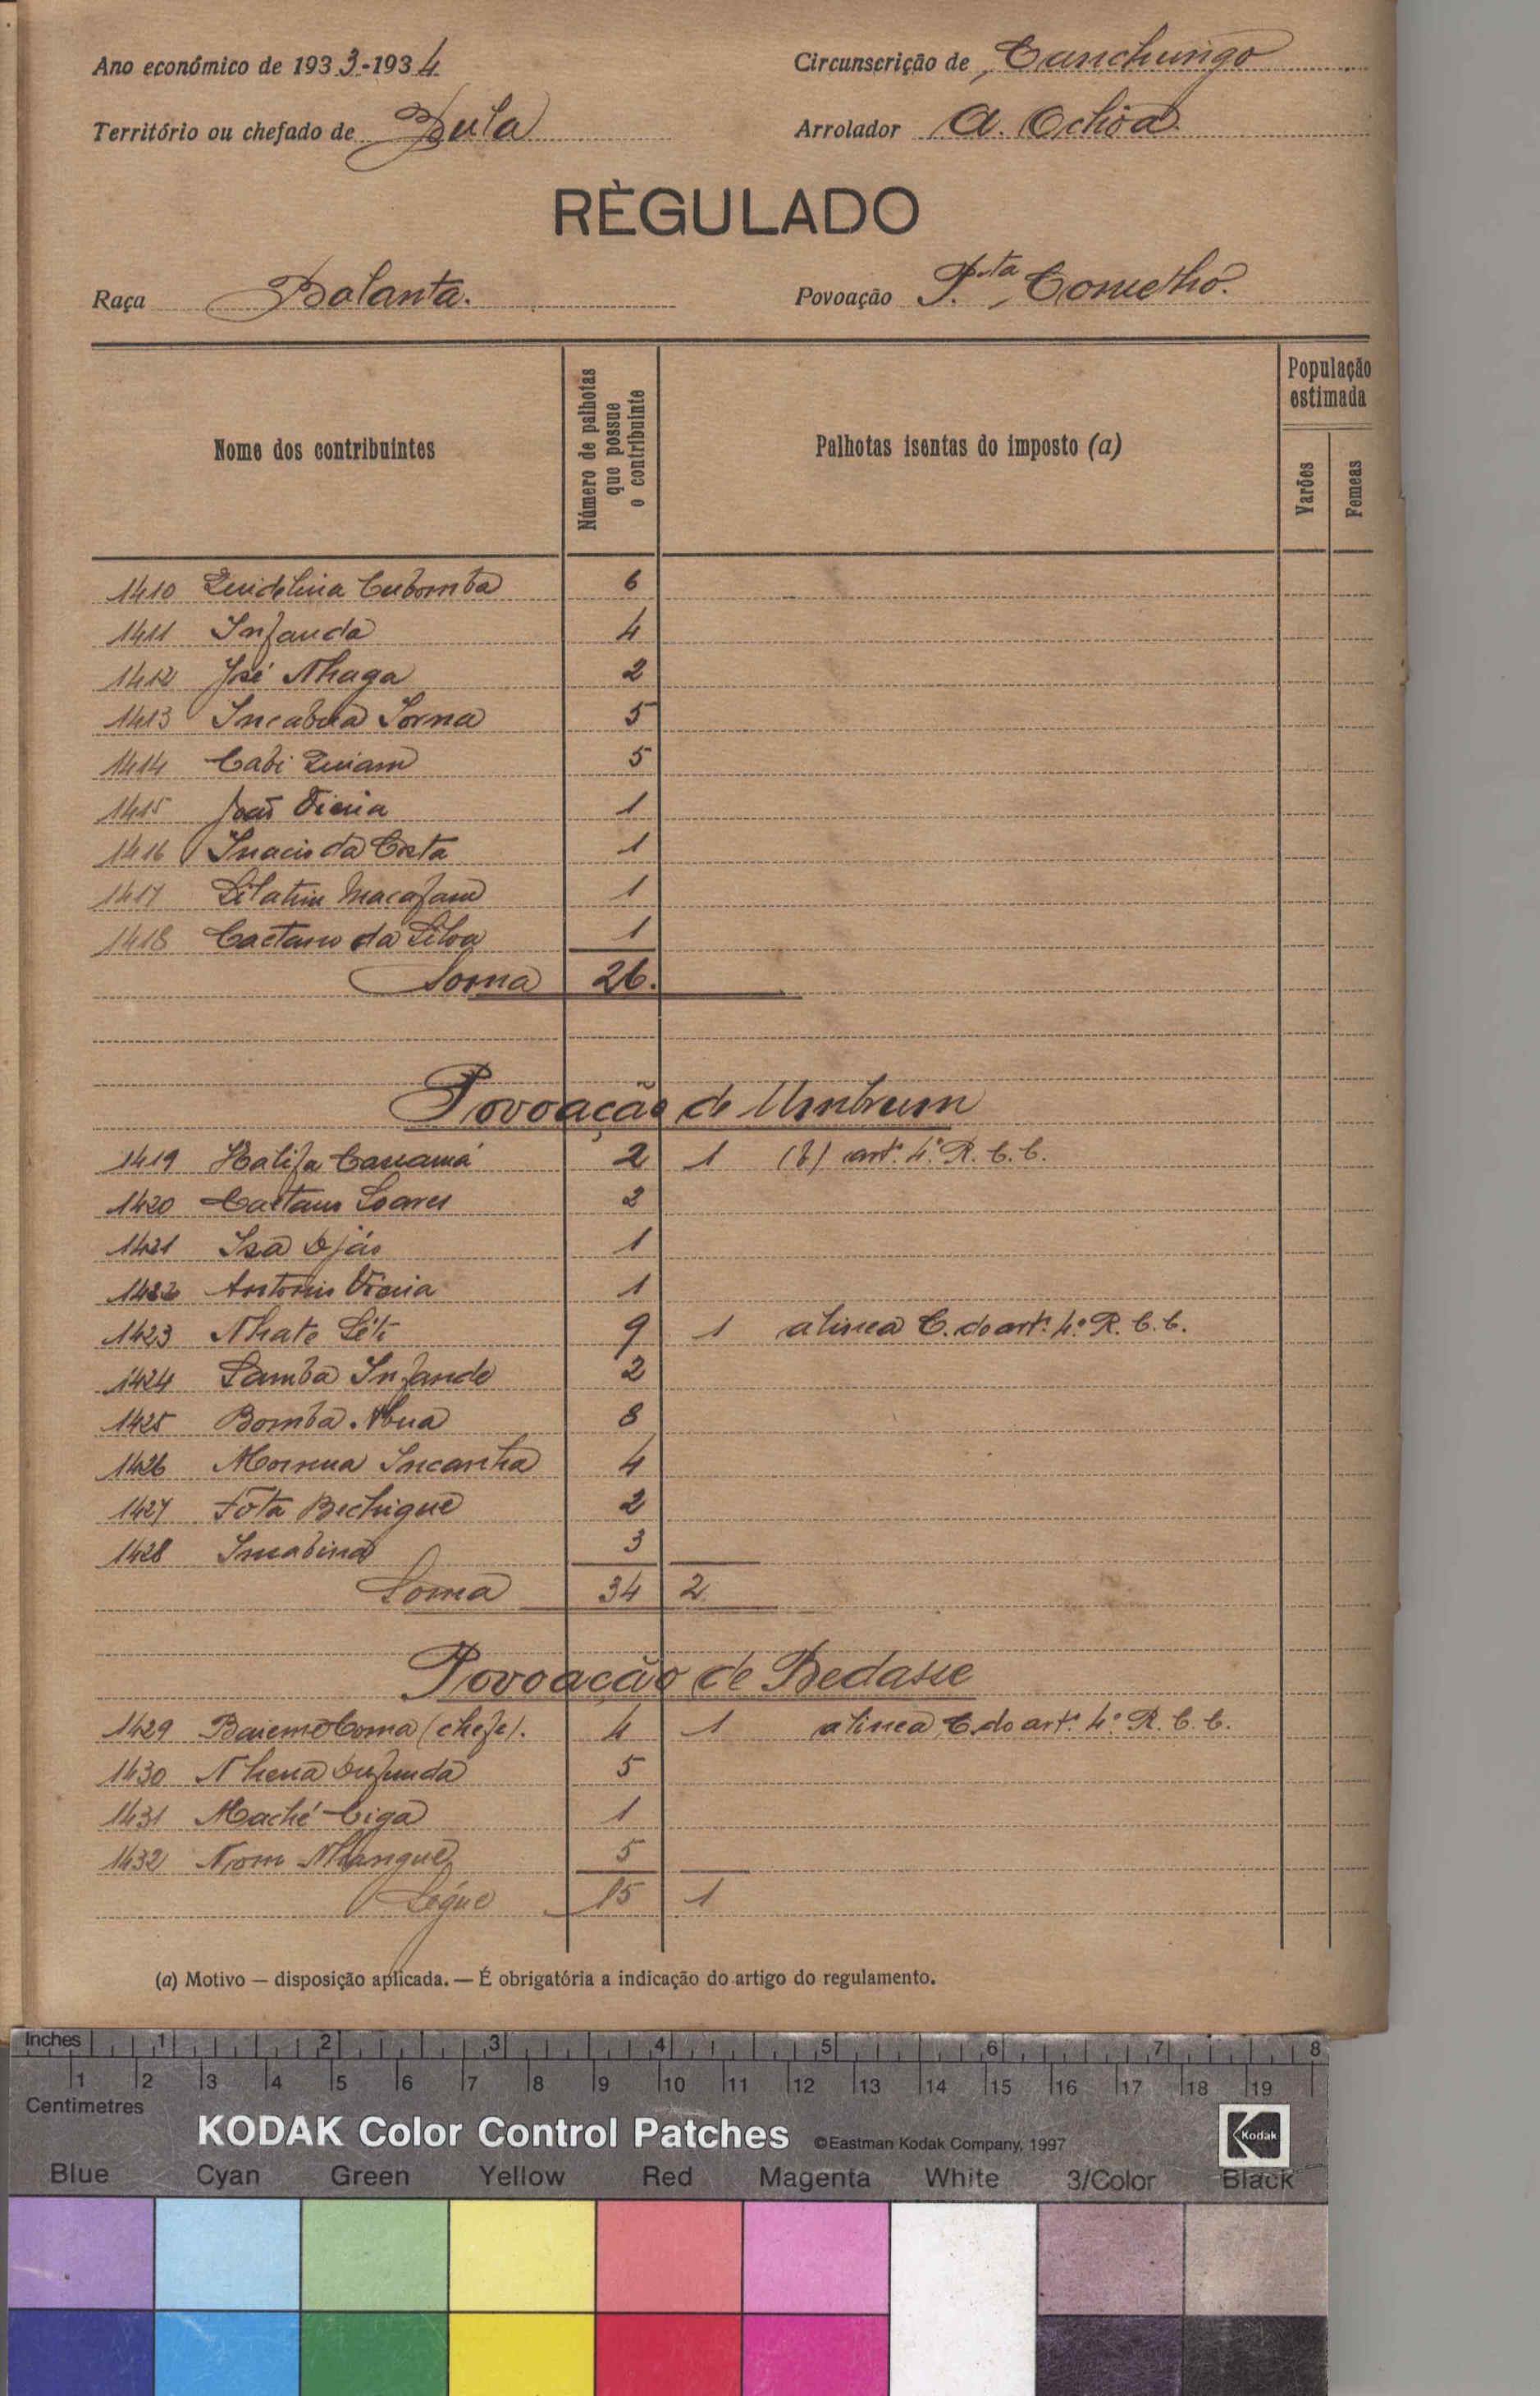 Ano económico de 1933-1934
Circunscrição de Canchungo
Território ou chefado de Bula
Arrolador A. Ochôa
RÈGULADO
Raça Balanta.
Povoação P.ta
Nome dos contribuintes
Número de palhotas que possue o contribuinte
Palhotas isentas do imposto (a)
População estimada
Varões
Femeas
1410 6
1411 Infanda 4
1412 José Nhaga 2
1413 5
1414 Cabi Quiam 5
1415 João Vieira 1
1416 Inacio da Costa 1
1417 1
1418 Caetano da Silva 1
Soma 26.
Povoação de Umbrum
1419 2 1 (b) art.º 4.º R. C. C.
1420 Caetano Soares 2
1421 1
1422 Antonio Vieira 1
1423 Nhate Léti 9 1 alinea C. do art.º 4.º R. C. C.
1424 Samba Infande 2
1425 Bomba 8
1426 Incanha 4
1427 Fóta Bechigue 2
1428 3
Soma 34 2
Povoação de Bedasse
1429 (chefe). 4 1 alinea C. do art.º 4.º R. C. C.
1430 5
1431 Maché Ciga 1
1432 5
Ségue 15 1
(a) Motivo — disposição aplicada. — É obrigatória a indicação do artigo do regulamento.
Inches 1 2 3 4 5 6 7 8
1 2 3 4 5 6 7 8 9 10 11 12 13 14 15 16 17 18 19
Centimetres
KODAK Color Control Patches ©Eastman Kodak Company, 1997 Kodak
Blue Cyan Green Yellow Red Magenta White 3/Color Black